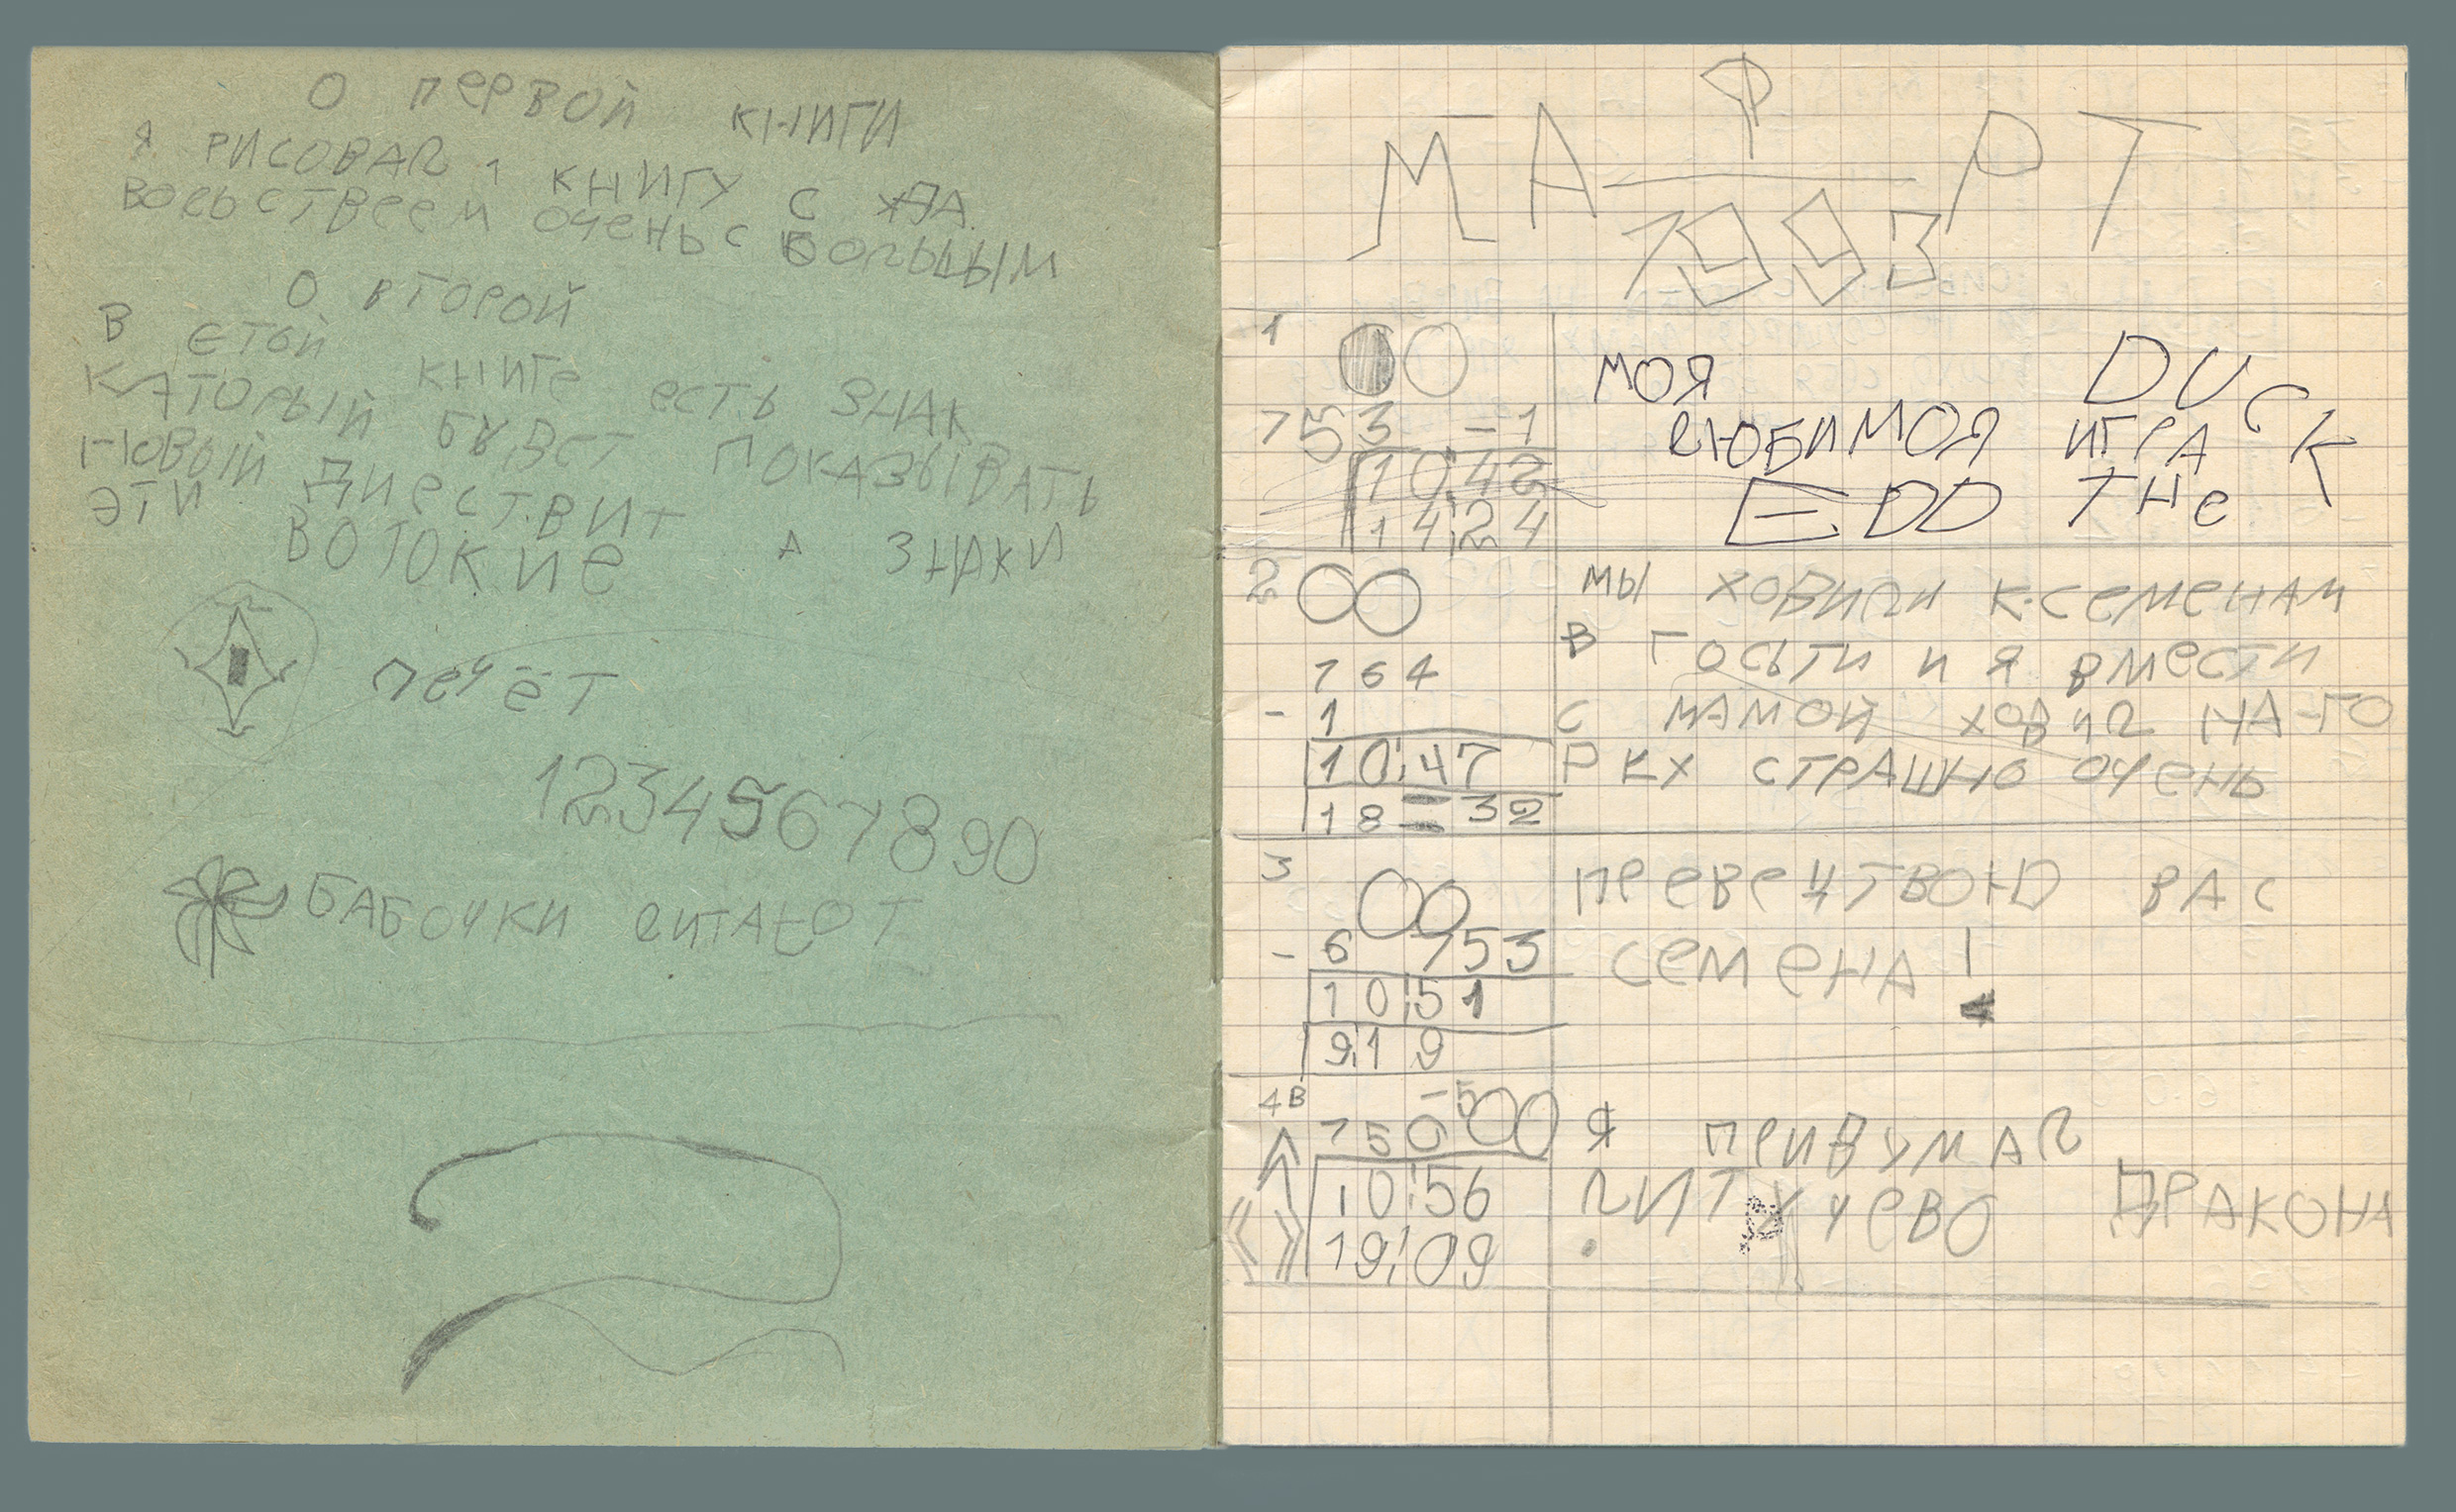 О ПЕРВОЙ КНИГИ
Я РИСОВАЛ 1 КНИГУ С
ВОЛЬСТВЕЕМ ОЧЕНЬ С БОЛЬЦЫМ
О ВТОРОЙ
В ЕТОЙ КНИГЕ ЕСТЬ ЗНАК
КАТОРЫЙ БУДЕТ ПОКАЗЫВАТЬ
НОВЫЙ ДИЕСТВИТ А ЗНАКИ
ЭТИ ВОТОКИЕ
ПЕЧЁТ
1234567890
БАБОЧКИ ЛИТАЮТ
МАРТ
1993
1
753 -1
10:42
14:24
МОЯ
ЛЮБИМОЯ ИГРА
EDD THE DUCK
2
764
- 1
10:47
18=32
МЫ ХОДИЛИ К-СЕМЕНАМ
В ГОСЬТИ И Я ВМЕСТИ
С МАМОЙ ХОДИЛ НА-ГО
РКХ СТРАШНО ОЧЕНЬ
3
- 6 753
10:51
9:19
ПРЕВЕЦТВОЮ ВАС
СЕМЕНА!
4В
-5
750
10:56
19:09
Я ПРИДУМАЛ
ЛИТУЧЕВО ДРАКОНА